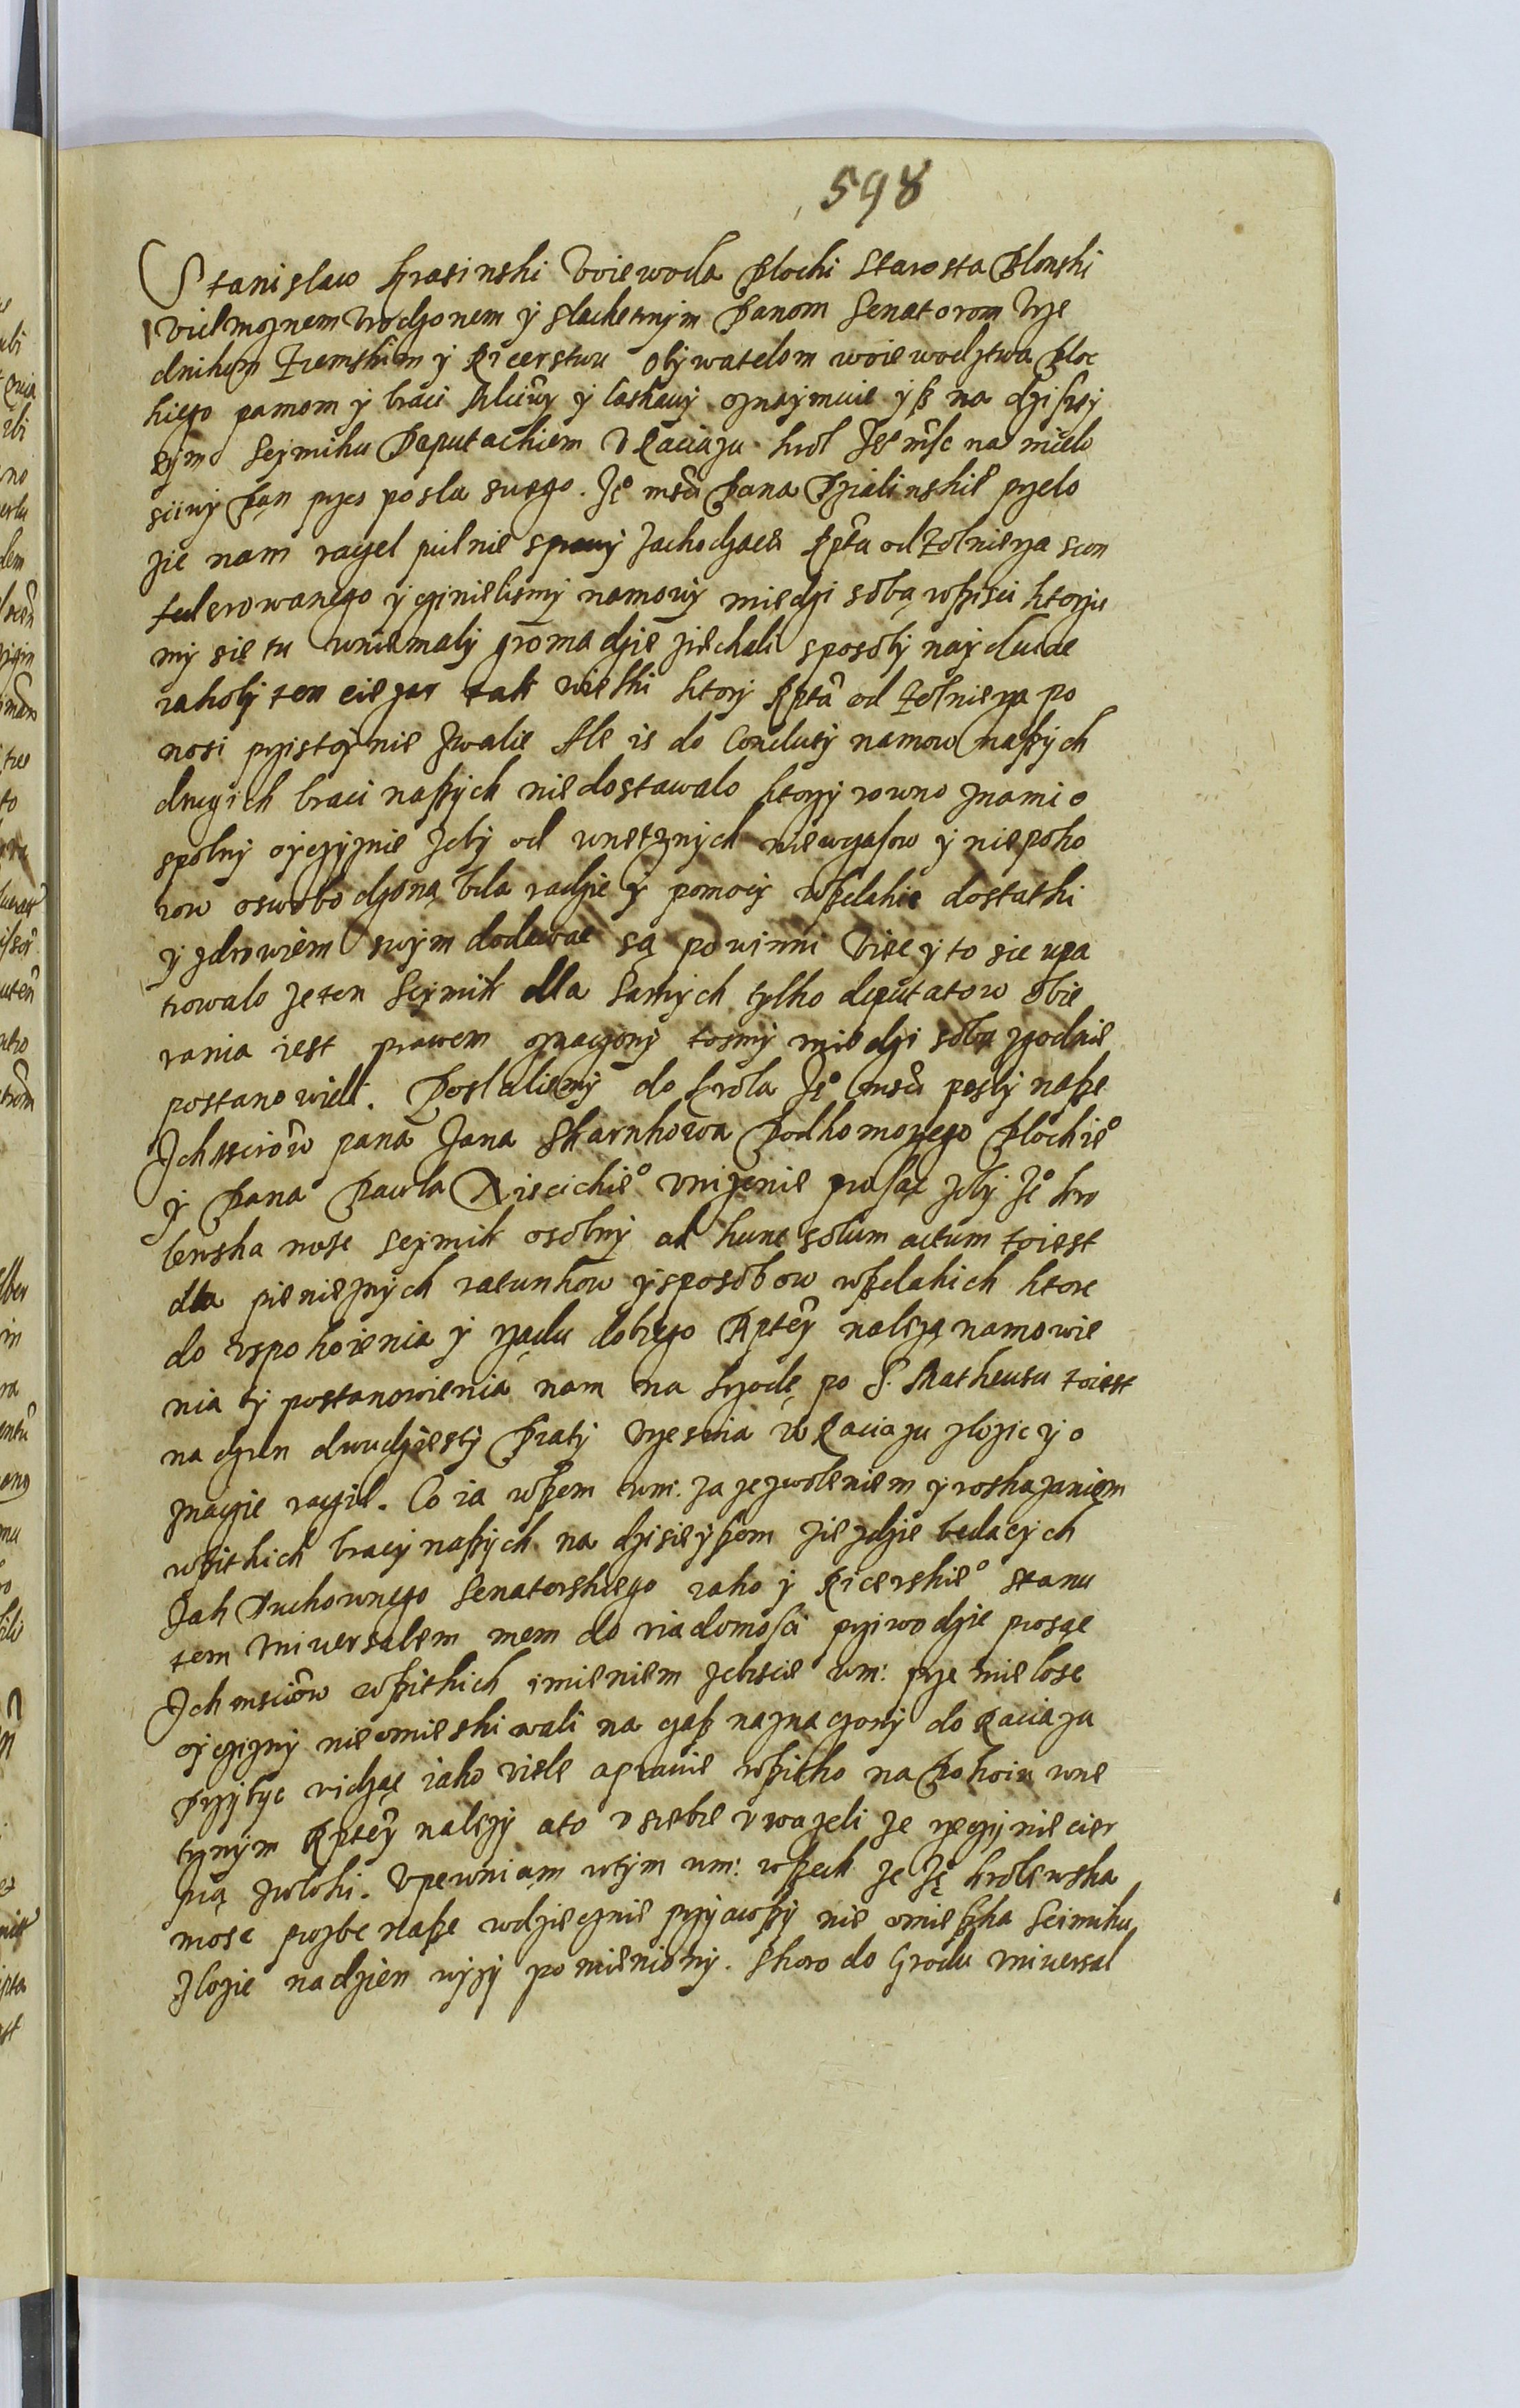 598
Stanislaw Krasinski Voiewoda Plocki Starosta Plonski
Vielmoznem Vrodzonem ÿ slachetnÿm Panom Senatorom Vrze
dnikom Ziemskim ÿ Ricerstwu Obÿwatelom woiewodztwa Ploc
kiego panom ÿ braci Milei ÿ laskawÿ oznaÿmuie ÿß na dziseÿ
szÿm Seÿmiku Deputackiem V Raciązu krol Je̊ mśc na milo
sciwÿ Pan przes posla swego Je̊ mśći Pana Dzialinskie przelo
zic nam raczel pilnie sprawÿ zachodzace Rptą od Zolnierza scon
federowanego ÿ czinielismÿ namowÿ miedzi sobą wßisci ktorzis
mÿ sie tu w niemalÿ gromadzie ziechali sposobÿ naÿduiac
iakobÿ ten ciezar tak wielki ktorÿ Rpta od Zolnierza po
nosi pristoÿnie zwalic Ale is do Conclusÿ namow naßÿch
drugich braci naßÿch nie dostawalo ktorzÿ rowno z nami o
spolnÿ oÿczÿznie zebÿ od wnetrznÿch niewczasow ÿ niepoko
iow oswobodzoną bela radzic ÿ pomocÿ wßelakie dostatki
ÿ zdrowiem swÿm dodawac są powinni Viec ÿ to sie upa
trowalo ze ten Seÿmik dla samÿch tÿlko deputatow obie
rania iest prawem oznaczonÿ tosmÿ miedzi sobą zgodnie
postanowieli. Poslalismÿ do krola Je̊ mśći poslÿ naße
Ichmsciow pana Jana Skarnkowa Podkomorzego Plockie̊
ÿ Pana Pawla Niscickie̊ vnizenie prosąc zebÿ Je̊ kro
lewska mosc Seÿmik osobnÿ ad hunc solum actum toiest
dla pienieznÿch ratunkow ÿ sposobow wßelakich ktore
do vspokoienia ÿ rządu dobrego Rptey należą namowie
nia ÿ postanowienia nam na srzodę po S. Matheusu toiest
na dzien dwudziestÿ Piątÿ Wrzesnia w Raciązu zlozic ÿ o
znaczic raczil. Co ia wßem wm: za zezwoleniem ÿ roskazaniem
wßitkich bracÿ naßÿch na dzisieÿßem ziezdzie bedacÿch
Jak Duchownego Senatorskiego iako ÿ Ricerskie̊ stanu
tem Vniuersalem mem do wiadomosci prziwodze prosąc
Ichmsciow wßitkich imieniem zebÿscie wm: prze mielosc
oÿczÿznÿ nie omieskiwali na czaß naznaczonÿ do Raciązu
Przÿbÿc widząc iako wiele a prawie wßitko na Pokoiu wne
trznÿm Rptey nalezÿ a to v siebie vwazeli ze rzeczÿ nie cier
pią zwloki. Vpewniam w tÿm wm: wßech ze Je̊ krolewska
mosc prozbe naße wdziecznie przÿiąwßÿ nie omießka Seimiku
zlozic na dzien wÿzÿ pomienionÿ. Skoro do Grodu Vniuersal